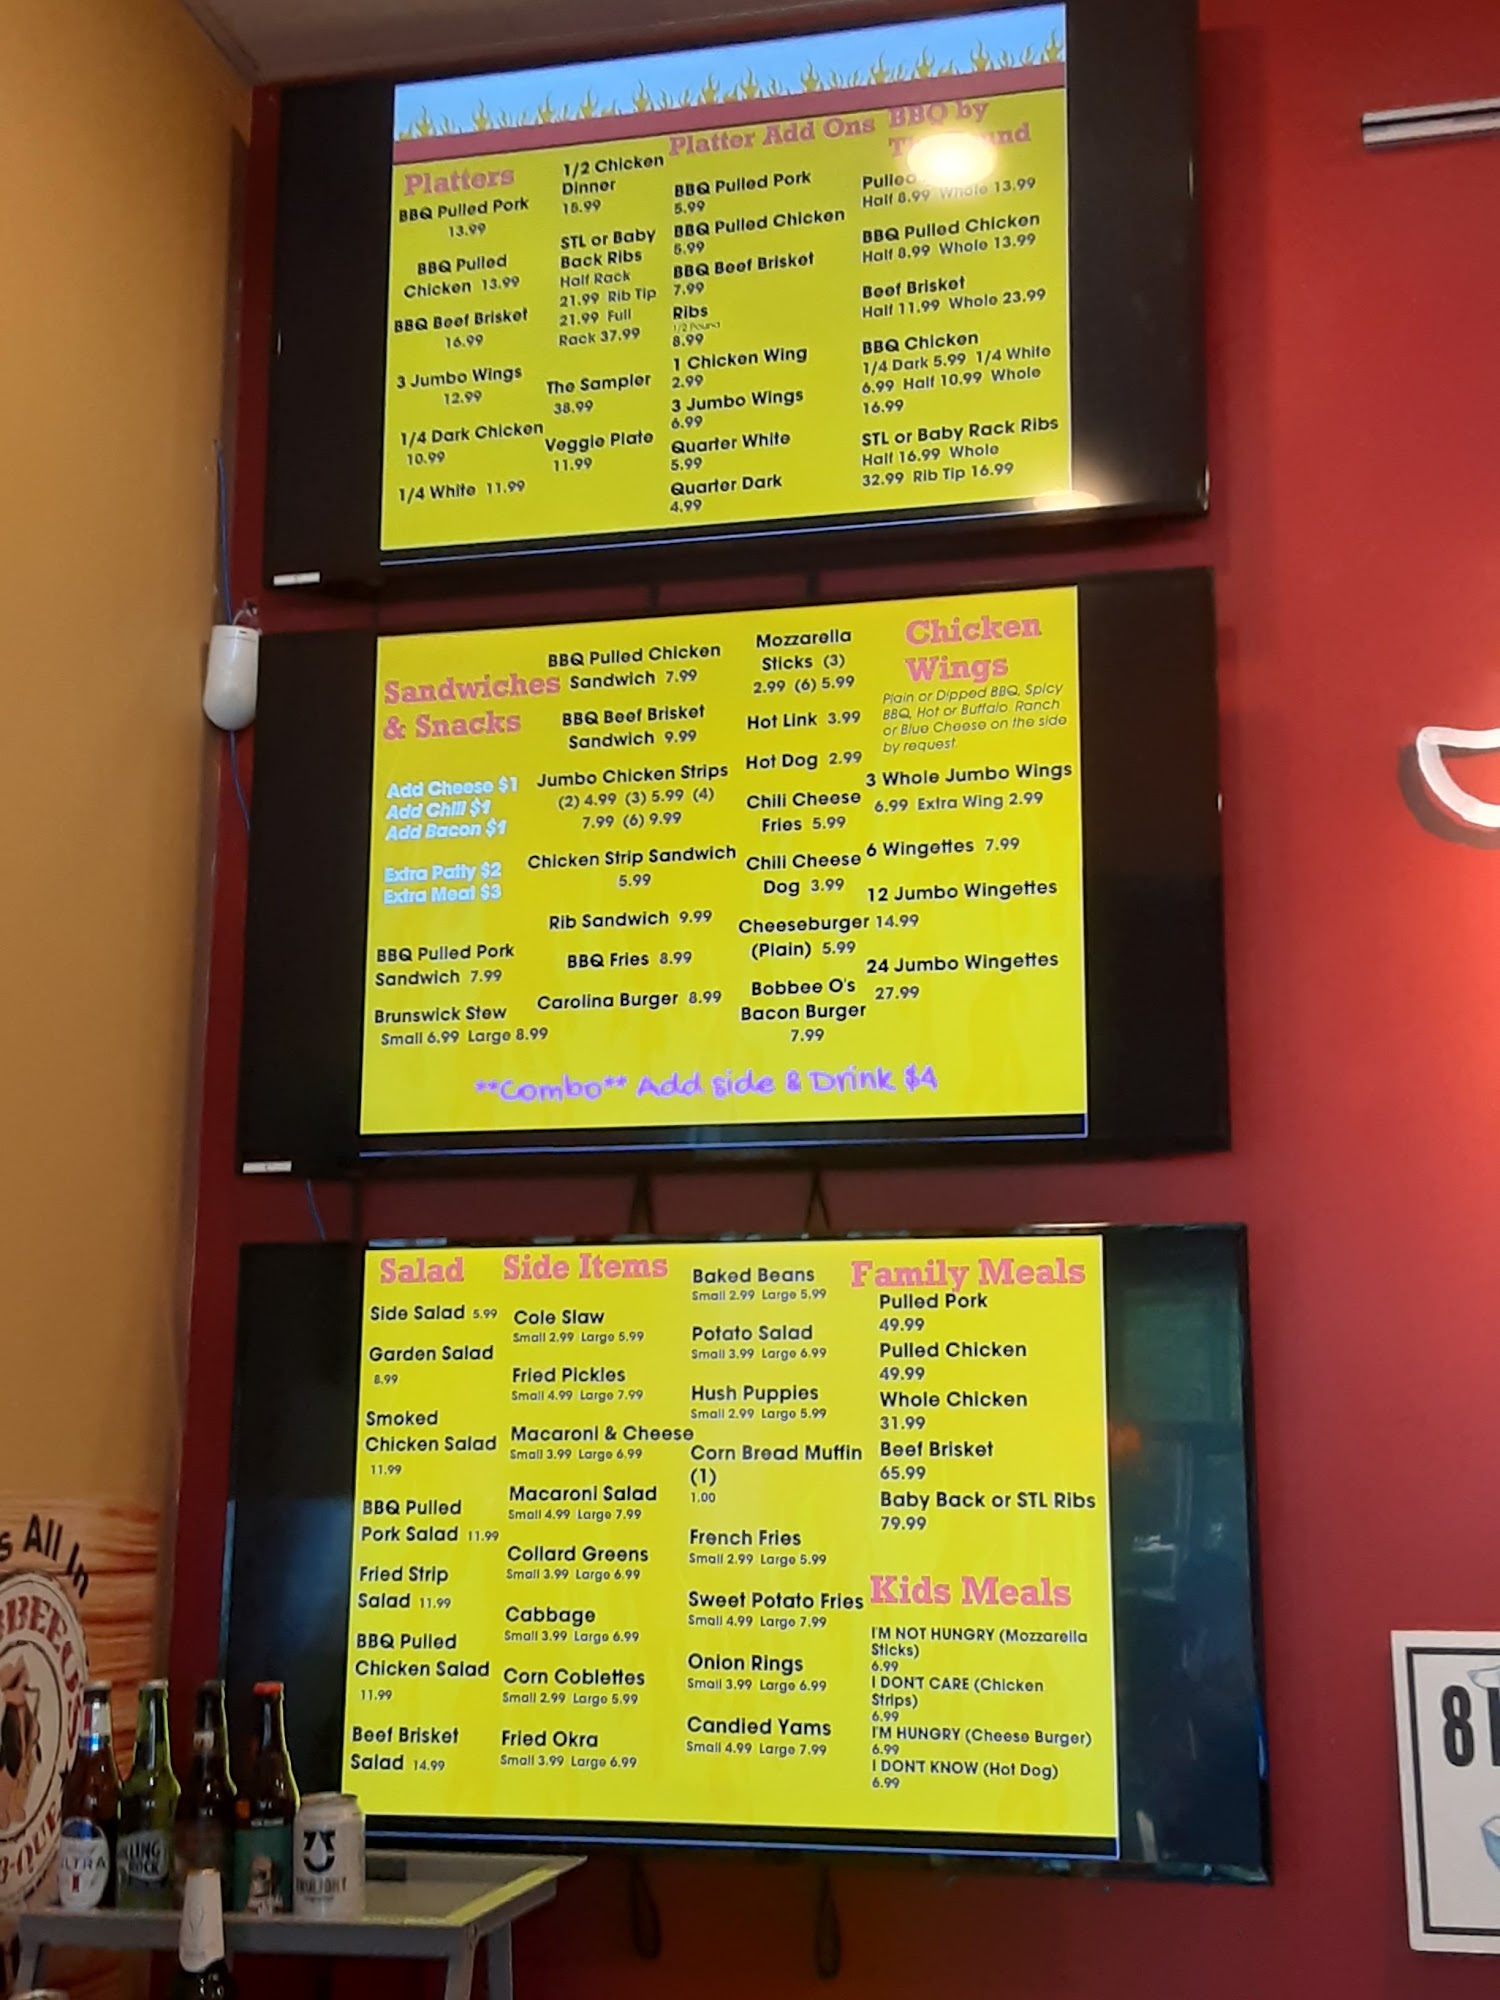 Platters
BBQ Pulled Pork
13.99
BBQ Pulled
Chicken 13.99
BBQ Beef Brisket
16.99
3 Jumbo Wings
12.99
1/4 Dark Chicken
10.99
1/4 White 11.99
1/2 Chicken
Dinner
15.99
STL or Baby
Back Ribs
Half Rack
21.99 Rib Tip
21.99 Full
Rack 37.99
The Sampler
38.99
Veggie Plate
11.99
Platter Add Ons
BBQ Pulled Pork
5.99
BBQ Pulled Chicken
5.99
BBQ Beef Brisket
7.99
Ribs
1/2 Pound
8.99
1 Chicken Wing
2.99
3 Jumbo Wings
6.99
Quarter White
5.99
Quarter Dark
4.99
BBQ by
Pulled
Half 8.99 Whole 13.99
BBQ Pulled Chicken
Half 8.99 Whole 13.99
Beef Brisket
Half 11.99 Whole 23.99
BBQ Chicken
1/4 Dark 5.99 1/4 White
6.99 Half 10.99 Whole
16.99
STL or Baby Rack Ribs
Half 16.99 Whole
32.99 Rib Tip 16.99
Sandwiches
& Snacks
Add Cheese $1
Add Chili $1
Add Bacon $1
Extra Patty $2
Extra Meat $3
BBQ Pulled Pork
Sandwich 7.99
Brunswick Stew
Small 6.99 Large 8.99
BBQ Pulled Chicken
Sandwich 7.99
BBQ Beef Brisket
Sandwich 9.99
Jumbo Chicken Strips
(2) 4.99 (3) 5.99 (4)
7.99 (6) 9.99
Chicken Strip Sandwich
5.99
Rib Sandwich 9.99
BBQ Fries 8.99
Carolina Burger 8.99
Mozzarella
Sticks (3)
2.99 (6) 5.99
Hot Link 3.99
Hot Dog 2.99
Chili Cheese
Fries 5.99
Chili Cheese
Dog 3.99
Cheeseburger
(Plain) 5.99
Bobbee O's
Bacon Burger
7.99
Chicken
Wings
Plain or Dipped BBQ, Spicy
BBQ, Hot or Buffalo Ranch
or Blue Cheese on the side
by request
3 Whole Jumbo Wings
6.99 Extra Wing 2.99
6 Wingettes 7.99
12 Jumbo Wingettes
14.99
24 Jumbo Wingettes
27.99
**Combo** Add side & Drink $4
Salad
Side Salad 5.99
Garden Salad
8.99
Smoked
Chicken Salad
11.99
BBQ Pulled
Pork Salad 11.99
Fried Strip
Salad 11.99
BBQ Pulled
Chicken Salad
11.99
Beef Brisket
Salad 14.99
Side Items
Cole Slaw
Small 2.99 Large 5.99
Fried Pickles
Small 4.99 Large 7.99
Macaroni & Cheese
Small 3.99 Large 6.99
Macaroni Salad
Small 4.99 Large 7.99
Collard Greens
Small 3.99 Large 6.99
Cabbage
Small 3.99 Large 6.99
Corn Coblettes
Small 2.99 Large 5.99
Fried Okra
Small 3.99 Large 6.99
Baked Beans
Small 2.99 Large 5.99
Potato Salad
Small 3.99 Large 6.99
Hush Puppies
Small 2.99 Large 5.99
Corn Bread Muffin
(1)
1.00
French Fries
Small 2.99 Large 5.99
Sweet Potato Fries
Small 4.99 Large 7.99
Onion Rings
Small 3.99 Large 6.99
Candied Yams
Small 4.99 Large 7.99
Family Meals
Pulled Pork
49.99
Pulled Chicken
49.99
Whole Chicken
31.99
Beef Brisket
65.99
Baby Back or STL Ribs
79.99
Kids Meals
I'M NOT HUNGRY (Mozzarella
Sticks)
6.99
I DON'T CARE (Chicken
Strips)
6.99
I'M HUNGRY (Cheese Burger)
6.99
I DON'T KNOW (Hot Dog)
6.99
All In
ULTRA
ROCK
8